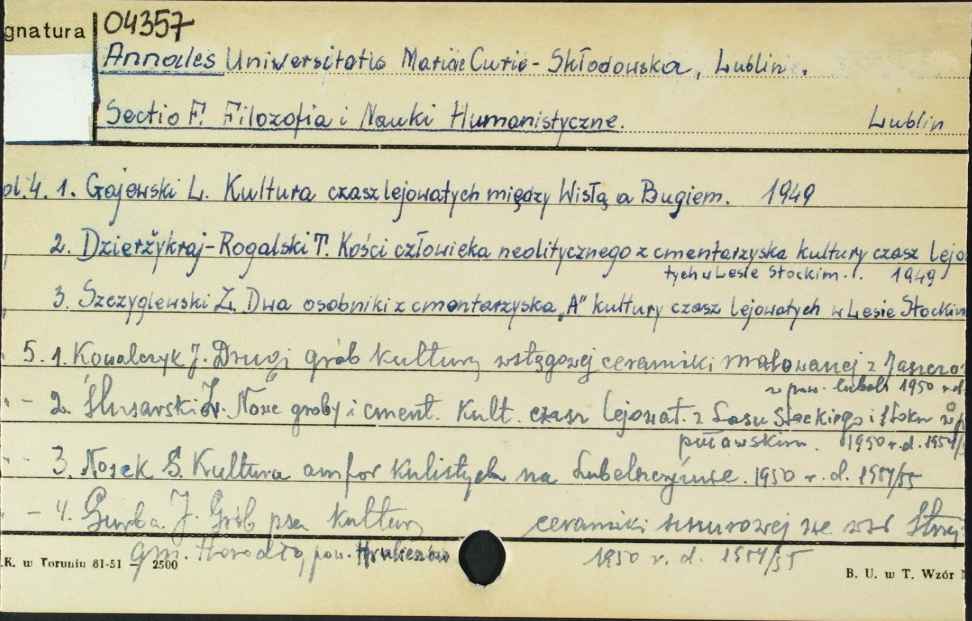 gnatura 04357
Annales Universitatis Mariae Curie-Skłodowska, Lublin.
Sectio F. Filozofia i Nauki Humanistyczne. Lublin
ol. 4. 1. Gajewski L. Kultura czasz lejowatych między Wisłą a Bugiem. 1949
2. Dzierżykraj-Rogalski T. Kości człowieka neolitycznego z cmentarzyska kultury czasz lejo
tych w Lesie Stockim. 1949
3. Szczyglewski Z. Dwa osobniki z cmentarzyska "A" kultury czasz lejowatych w Lesie Stockim
5. 1. Kowalczyk J. Drugi grób kultury wstęgowej ceramiki malowanej z Jaszczo
w pow. lubels 1950 r. d.
- 2. Ślusarski Nowe groby i cment. kult. czasz lejowat. z Lasu Stockiego i Stoku w p
puławskim. 1950 r. d. 1954/5
3. Nosek S. Kultura amfor kulistych na Lubelszczyźnie. 1950 r. d. 1954/55
- 4. Gurba J. Grób psa kultury ceramiki sznurowej ze wsi
gm. Horodło, pow. Hrubieszów 1950 r. d. 1954/55
.K. w Toruniu 81-51 — 2500 B. U. w T. Wzór